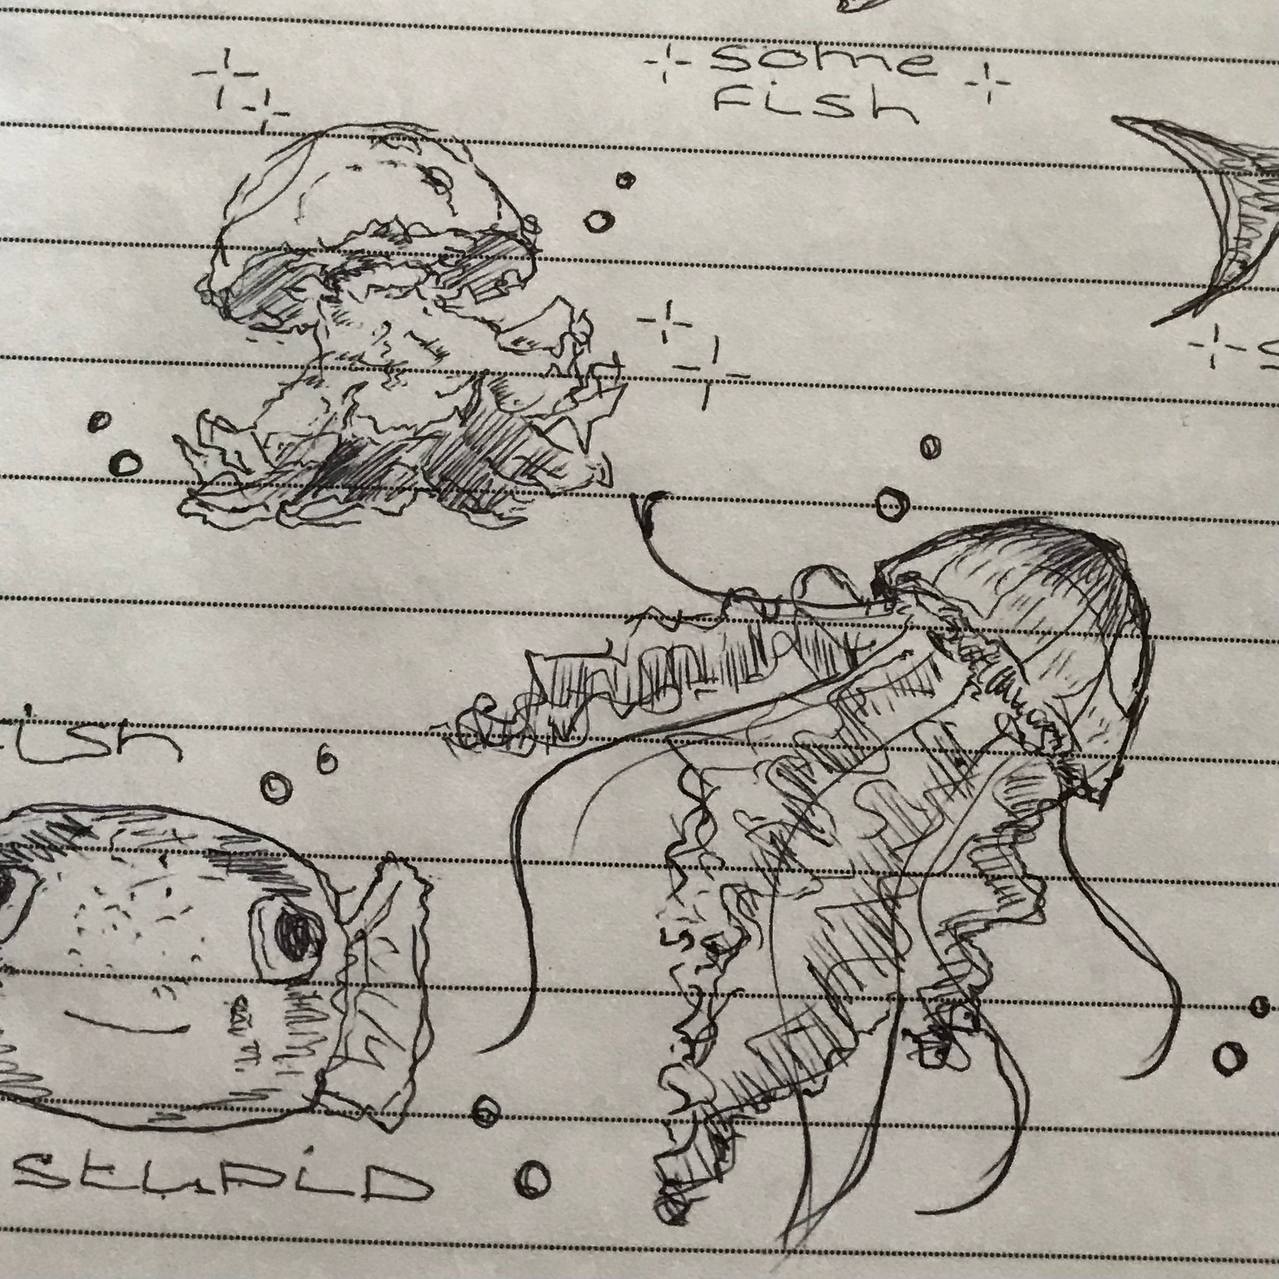 some
Fish
ish
StupiD